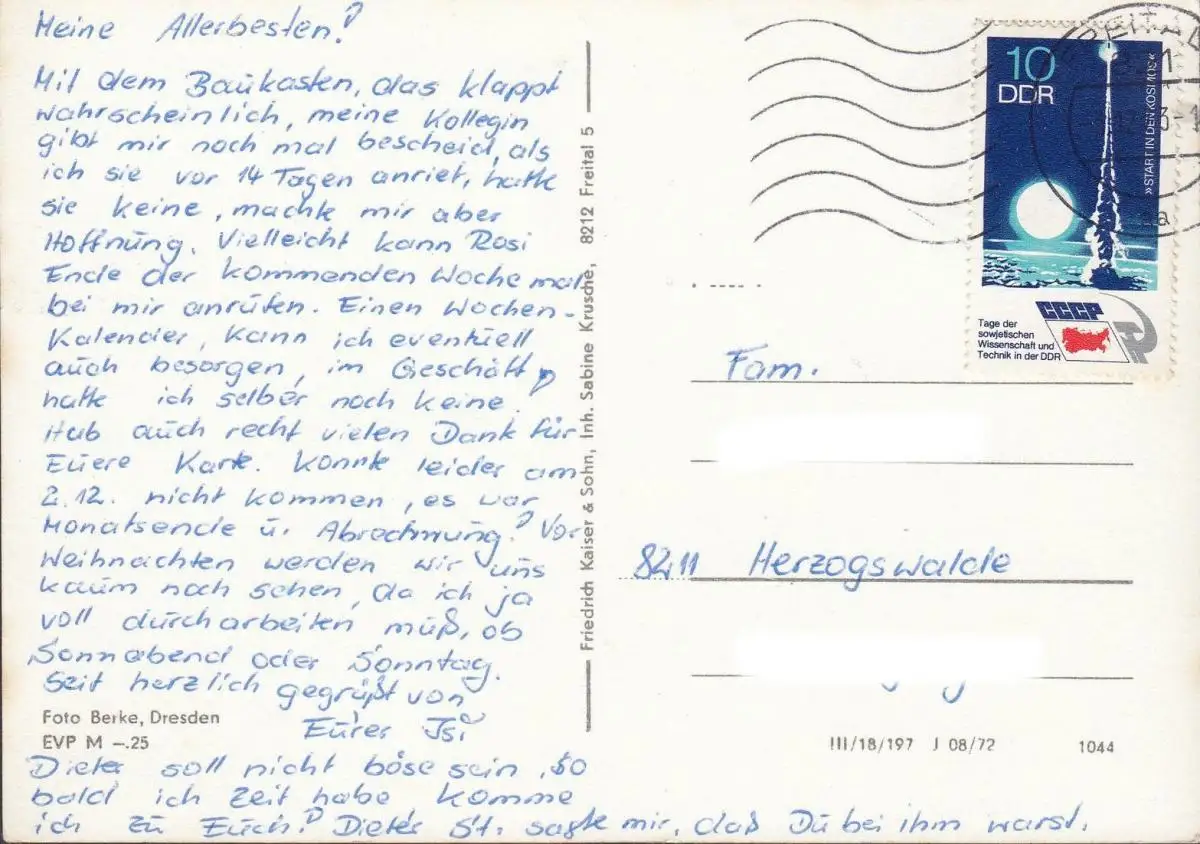 Meine Allerbesten!
Mit dem Baukasten, das klappt
wahrscheinlich, meine Kollegin
gibt mir noch mal bescheid, als
ich sie vor 14 Tagen anrief, hatte
sie keine, machte mir aber
Hoffnung. Vielleicht kann Rosi
Ende der kommenden Woche mal
bei mir anrufen. Einen Wochen-
kalender, kann ich eventuell
auch besorgen, im Geschäft
hatte ich selber noch keine!
Hab auch recht vielen Dank für
Euere Karte. Konnte leider am
2.12. nicht kommen, es war
Monatsende u. Abrechnung! Vor
Weihnachten werden wir uns
kaum noch sehen, da ich ja
voll durcharbeiten muß, ob
Sonnabend oder Sonntag.
Seit herzlich gegrüßt von
Eurer Isi
Foto Berke, Dresden
EVP M –.25
Dieter soll nicht böse sein, so
bald ich Zeit habe komme
ich zu Euch! Dieter St. sagte mir, daß Du bei ihm warst.
Friedrich Kaiser & Sohn, Inh. Sabine Krusche, 8212 Freital 5
FREITAL
10
DDR
»START IN DEN KOSMOS«
CCCP
Tage der
sowjetischen
Wissenschaft und
Technik in der DDR
Fam.
8211 Herzogswalde
III/18/197 J 08/72 1044